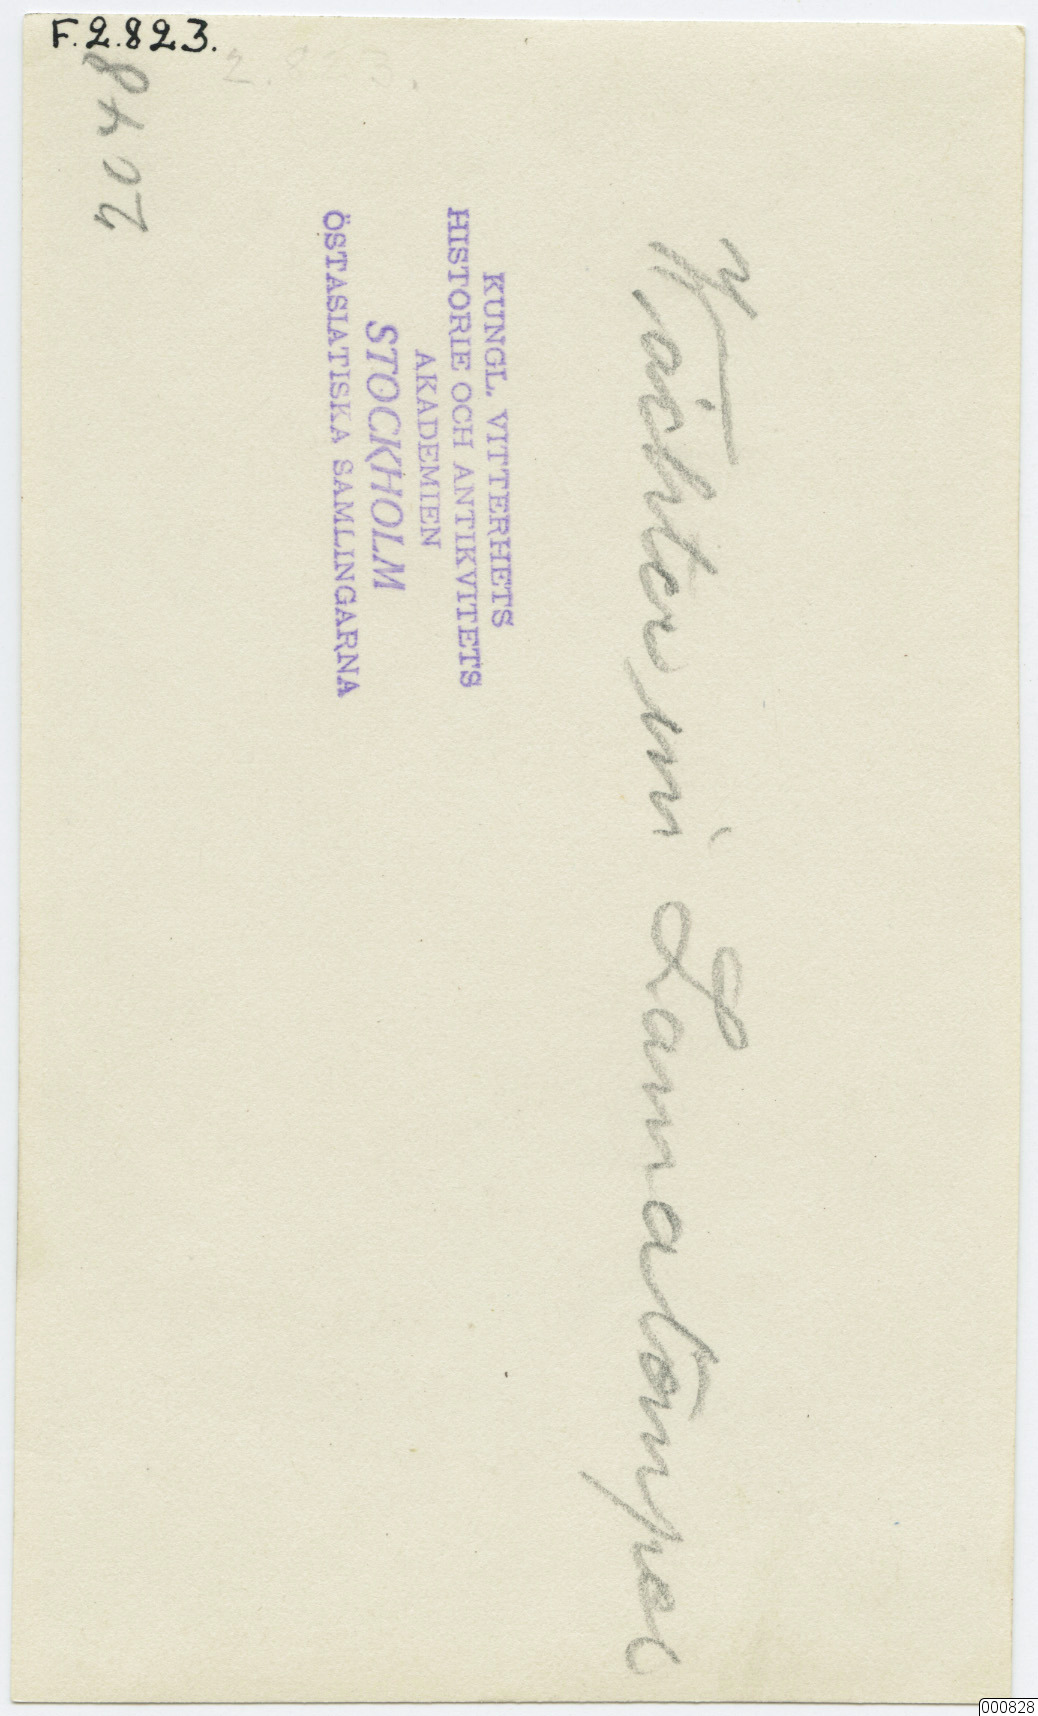 F.2.823.
2.823.
KUNGL. VITTERHETS
HISTORIE OCH ANTIKVITETS
AKADEMIEN
STOCKHOLM
ÖSTASIATISKA SAMLINGARNA
im Lamatempel
000828